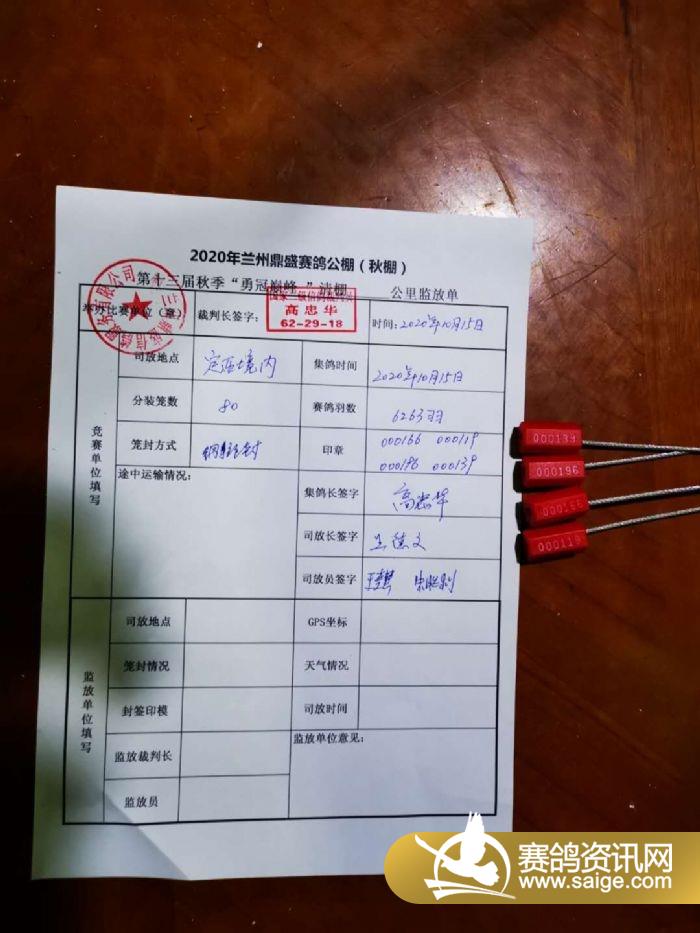 2020年兰州鼎盛赛鸽公棚（秋棚）
第十三届秋季“勇冠巅峰 ”清棚 公里监放单
举办比赛单位（章） 裁判长签字： 高忠华 62-29-18 时间：2020年10月15日
竞赛单位填写
司放地点 定西境内 集鸽时间 2020年10月15日
分装笼数 80 赛鸽羽数 6263羽
笼封方式 钢丝封 印章 000166 000119
000196 000139
途中运输情况： 集鸽长签字 高忠华
司放长签字
司放员签字
监放单位填写
司放地点 GPS坐标
笼封情况 天气情况
封签印模 司放时间
监放裁判长 监放单位意见：
监放员
000139
000196
000119
赛鸽资讯网
www.saige.com